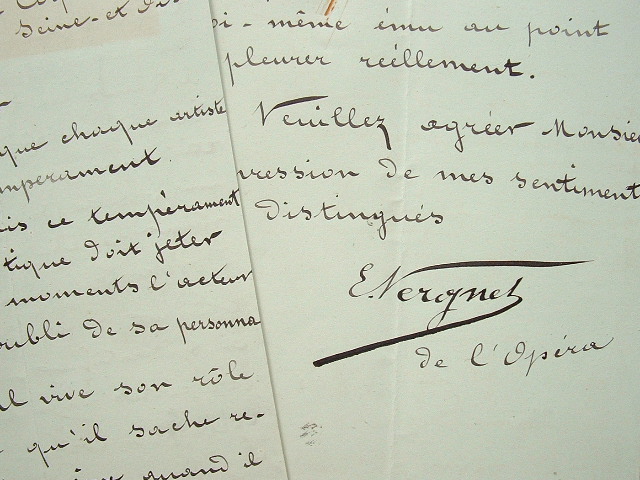 Seine-et-
que chaque artiste
tempérament
ce tempérament
doit jeter
moments l'acteur
oubli de sa personna
vive son rôle
qu'il sache re-
quand il
- même ému au point
pleurer réellement.
Veuillez agréer Monsieu
ression de mes sentiment
distingués
E. Vergnet
de l'Opéra